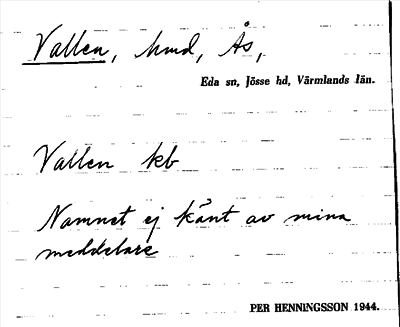 Vallen, hmd, Ås,
Eda sn, Jösse hd, Värmlands län.
Vallen kb
Namnet ej känt av mina
meddelare
PER HENNINGSSON 1944.